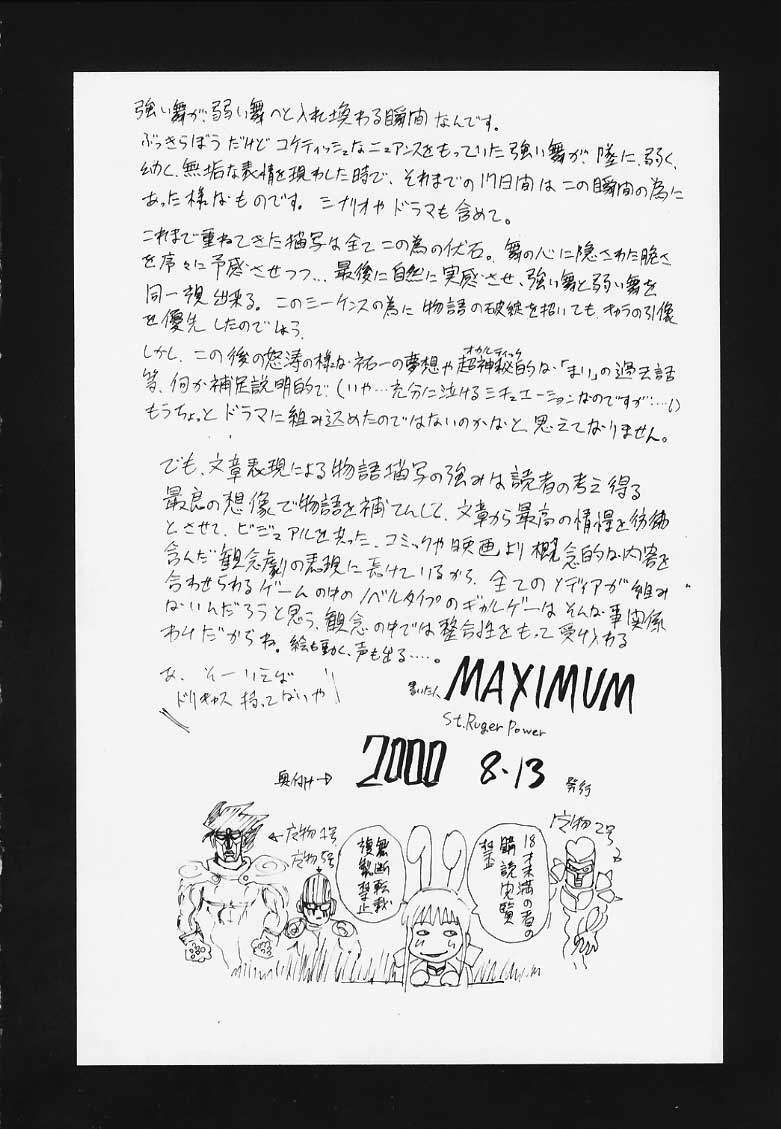 強い舞が、弱い舞へと入れ換わる瞬間なんです。
ぶっきらぼうだけどコケティッシュなニュアンスをもっていた強い舞が、陸に、弱く、
幼く、無垢な表情を現わした時で、それまでの17日間はこの瞬間の為に
あった様なものです。シナリオやドラマも含めて。
これまで重ねてきた描写は全てこの為の伏石。舞の心に隠された脆さ
を序々に予感させつつ…最後に自然に実感させ、強い舞と弱い舞を
同一視出来る。このシーケンスの為に物語の破綻を招いても、キャラの引像
を優先したのでしょう。
しかし、この後の怒涛の様な祐一の夢想や超神秘的な「まい」の過去話
オカルティック
等、何か補足説明的で(いや…充分に泣けるシチュエーションなのですが……。)
もうちょっとドラマに組み込めたのではないのかなと、思えてなりません。
でも、文章表現による物語描写の強みは読者の考え得る
最良の想像で物語を補てんして、文章から最高の情憬を彷彿
とさせて、ビジュアルを失った、コミックや映画より概念的な内容を
含んだ観念劇の表現に長けているから、全てのメディアが組み
合わせられるゲームの中のノベルタイプのギャルゲーはそんな事関係
ないんだろうと思う、観念の中では整合性をもって受け入れる
わけだからね。絵も動く、声も出る……。
あ、そーいえば
ドリキャス持ってないや
書いた人 MAXIMUM
St.Ruger Power
奥付け→ 2000 8・13 発行
←応物1号
応物5号
無断転載
複製禁止
18才未満の者の
購読閲覧
禁止
応物2号